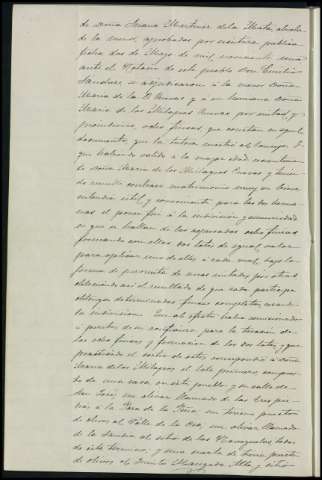 de doña Juana Martinez de la Mata, abuela
de la menor, aprobadas por escritura publica
fecha dos de Mayo de mil novecientos
ante el Notario de este pueblo Don Emilio
Sanchez, se adjudicaron á la menor Doña
Maria de la y a su hermana Doña
Maria de los Milagros Cuevas por mitad y
proindiviso, ocho fincas que constan en aquel
documento, que la tutora mostró al Consejo. Y
que habiendo salido á la mayor edad
doña Maria de los Milagros Cuevas y
contraer matrimonio muy en breve
entendia util y conveniente para las dos herma
nas el poner fin á la indivision y comunidad
en que se hallan de las expresadas ocho fincas
formando con ellas dos lotes de igual valor
para aplicar uno de ellos á cada cual, bajo la
forma de permuta de unas mitades por otras
obteniendo asi el resultado de que cada participe
obtenga determinadas fincas completas, cesando
la indivision. Que al efecto habia comisionado
á peritos de su confianza para la tasacion de
las ocho fincas y formacion de los dos lotes, y que
practicado el sorteo de estos correspondió á doña
Maria de los Milagros el lote primero compues
to de una casa en este pueblo y su calle de
San José, un olivar llamado de las tres pie
zas á la Peña, un tercio puesto
de olivos al Valle de la un olivar llamado
de la al sitio de las todos
de este termino, y una suerte de treinta
de olivos al y ocho